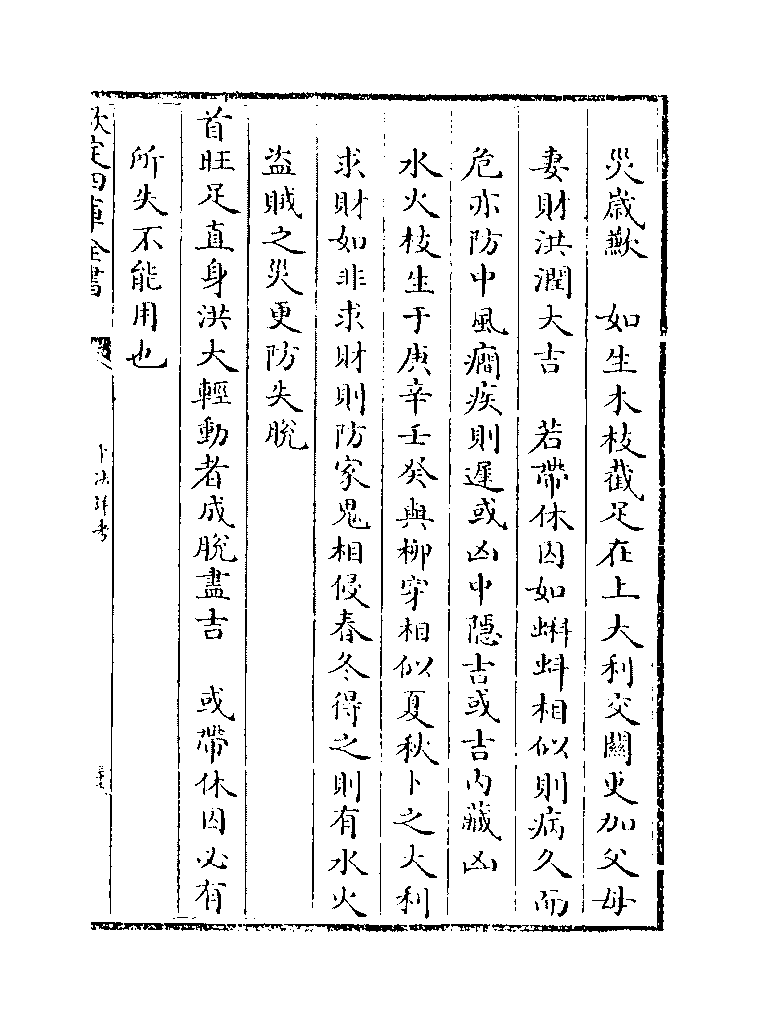 災歲歉　如生木枝截足在上大利交關更加父母
妻財洪潤大吉　若帶休囚如蝌蚪相似則病久而
危亦防中風癎疾則遲或凶中隱吉或吉内藏凶
水火枝生于庚辛壬癸與柳穿相似夏秋卜之大利
求財如非求財則防家鬼相侵春冬得之則有水火
盜賊之災更防失脫
首旺足直身洪大輕動者成脫盡吉　或帶休囚必有
所失不能用也
欽定四庫全書
卜法詳考